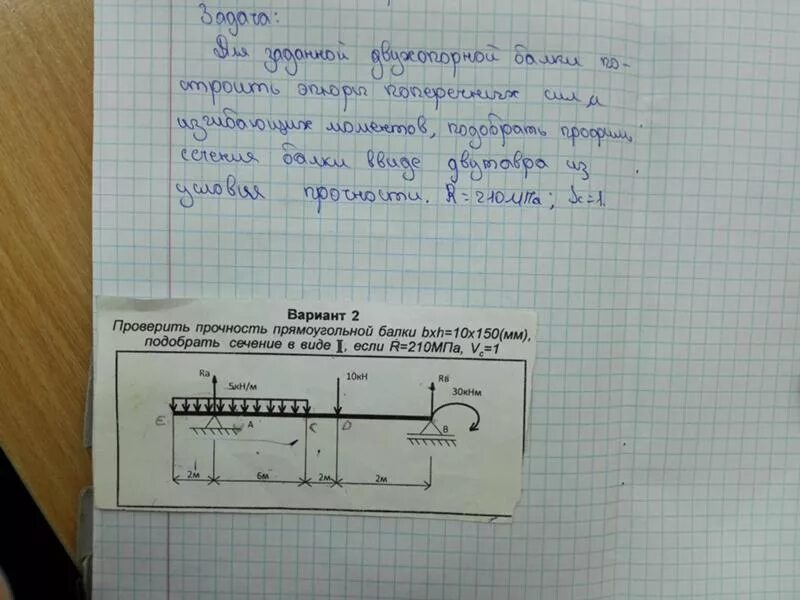 Задача:
Для заданной двухопорной балки по-
строить эпюры поперечных сил и
изгибающих моментов, подобрать профиль
сечения балки ввиде двутавра из
условия прочности. R=210МПа; γc=1.
Вариант 2
Проверить прочность прямоугольной балки bxh=10x150(мм),
подобрать сечение в виде I, если R=210МПа, Vc=1
Rа 5кН/м 10кН Rв 30кНм
E A C D B
2м 6м 2м 2м